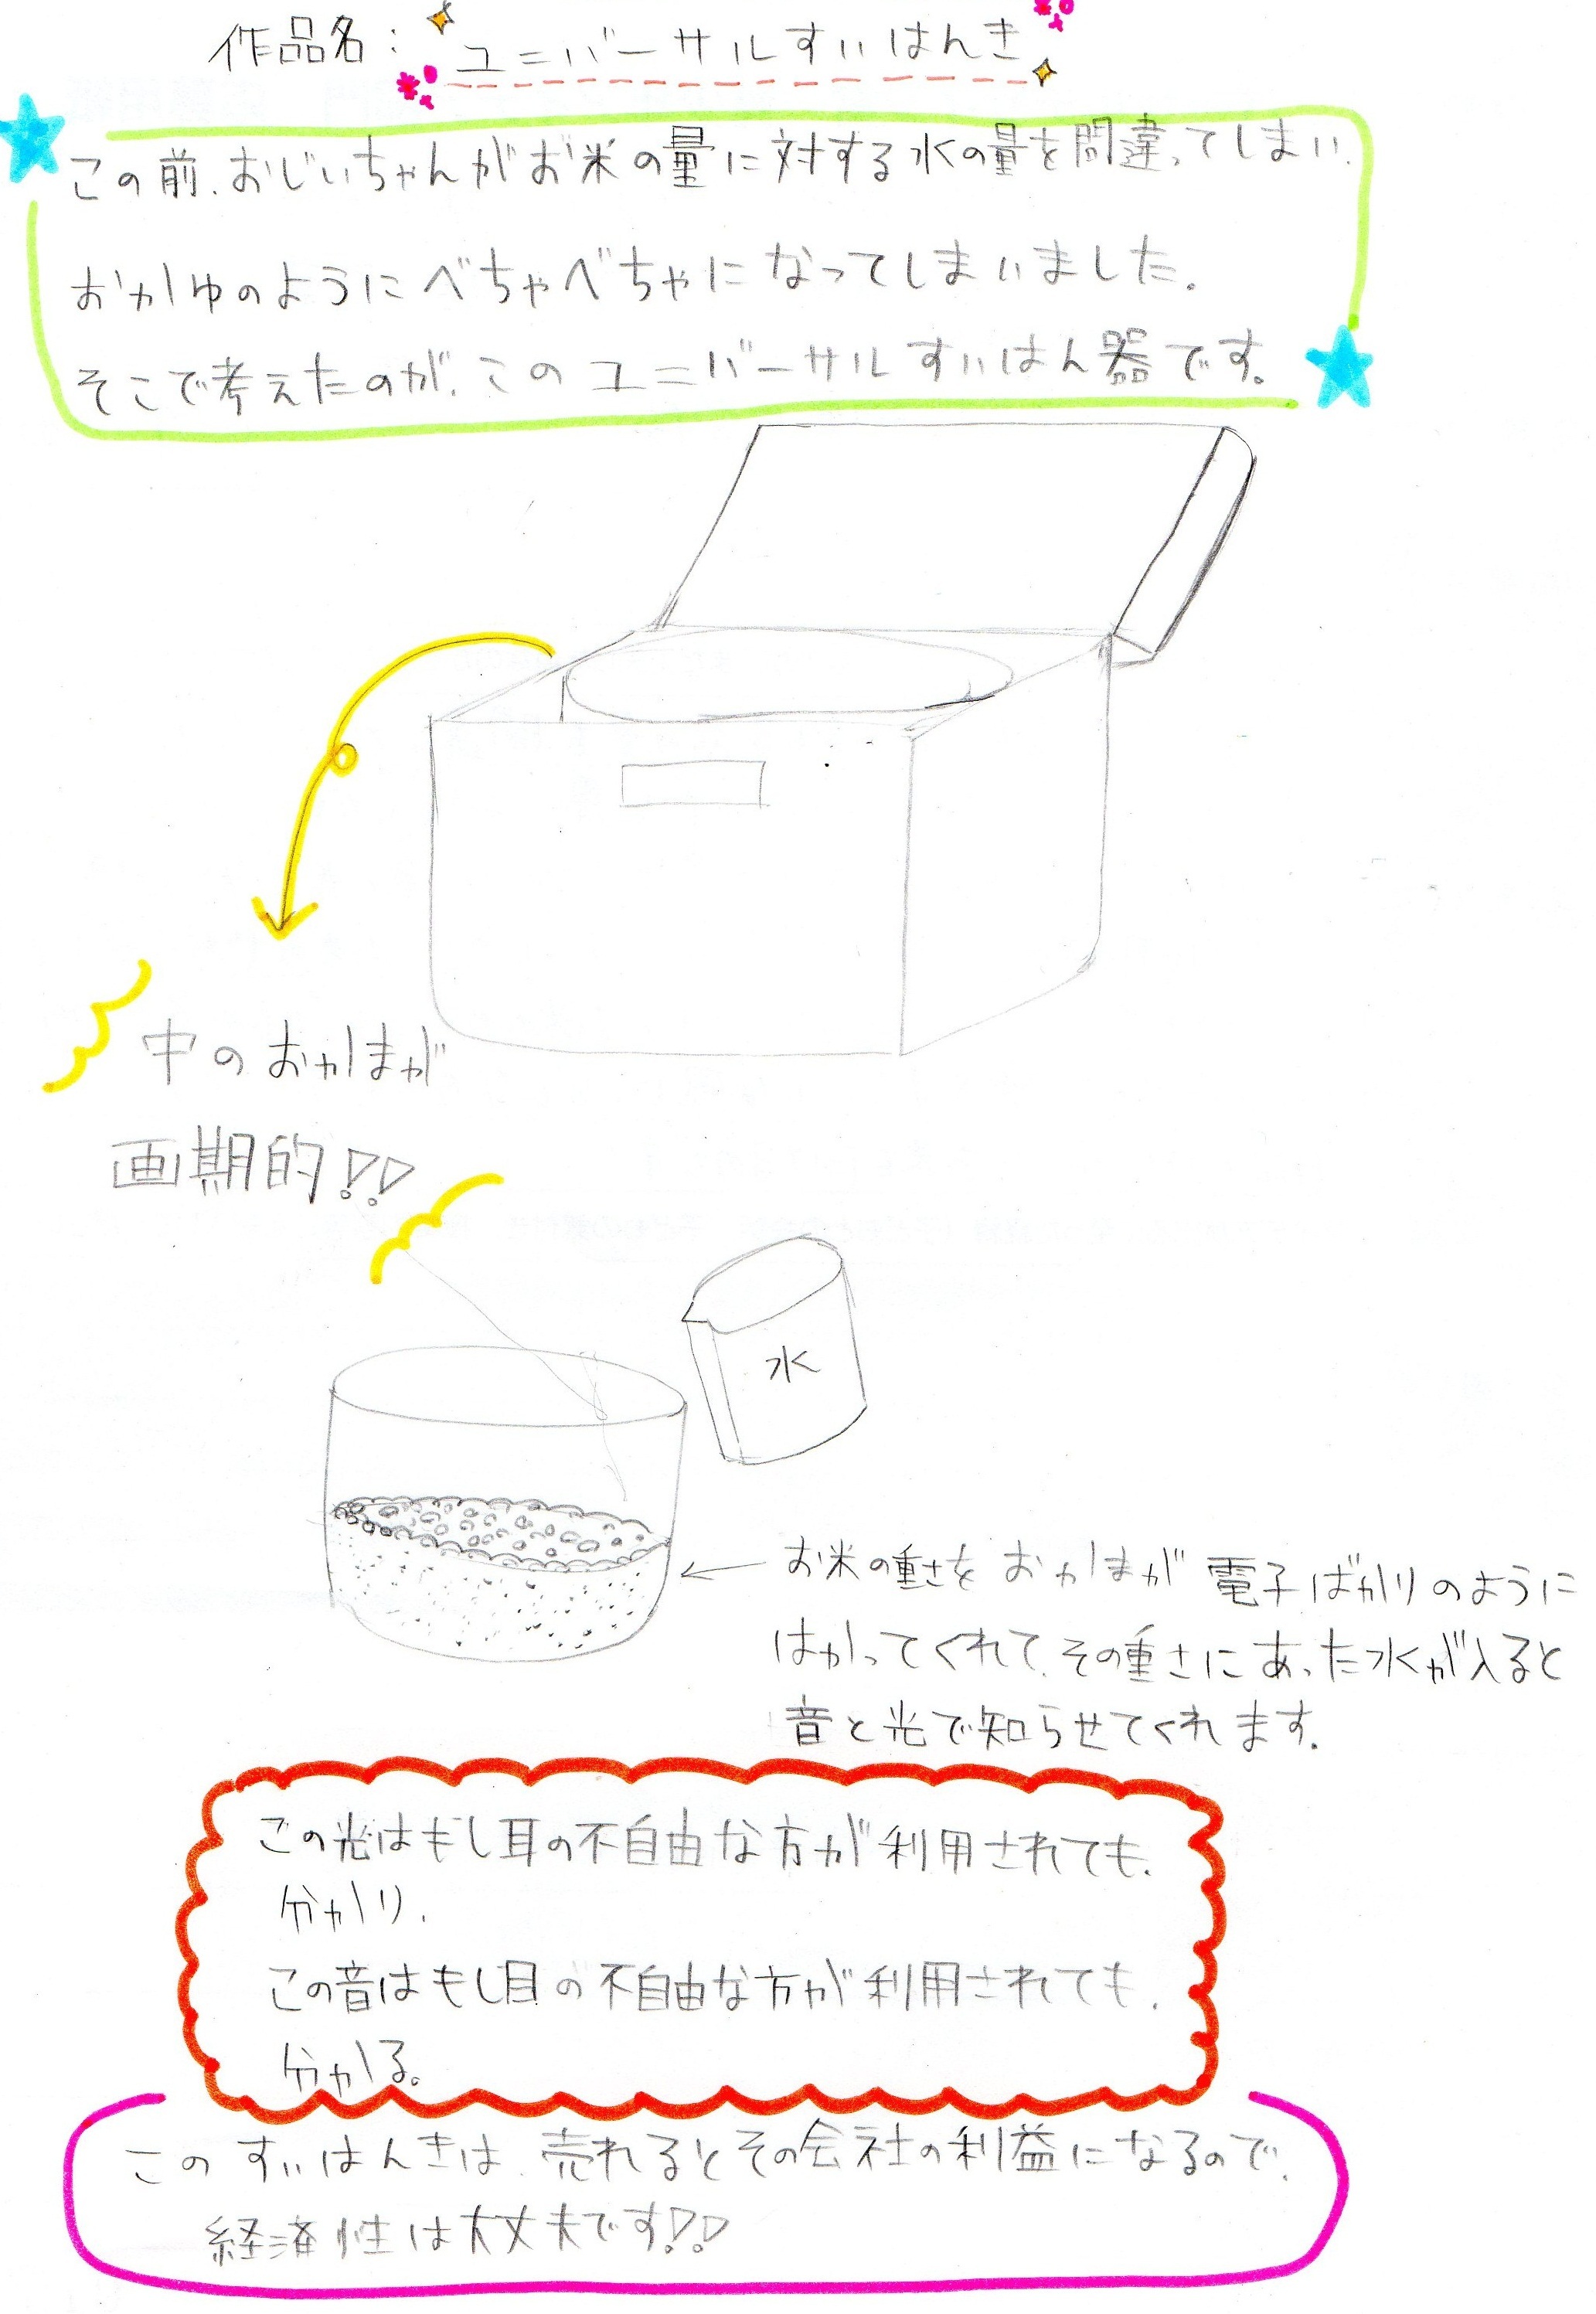 作品名：ユニバーサルすいはんき
この前、おじいちゃんがお米の量に対する水の量を間違ってしまい、
おかゆのようにべちゃべちゃになってしまいました。
そこで考えたのが、このユニバーサルすいはん器です。
中のおかまが
画期的!!
水
お米の重さをおかまが電子ばかりのように
はかってくれて、その重さにあった水が入ると
音と光で知らせてくれます。
この光はもし耳の不自由な方が利用されても、
分かり、
この音はもし目の不自由な方が利用されても、
分かる。
このすいはんきは、売れるとその会社の利益になるので、
経済性は大丈夫です!!